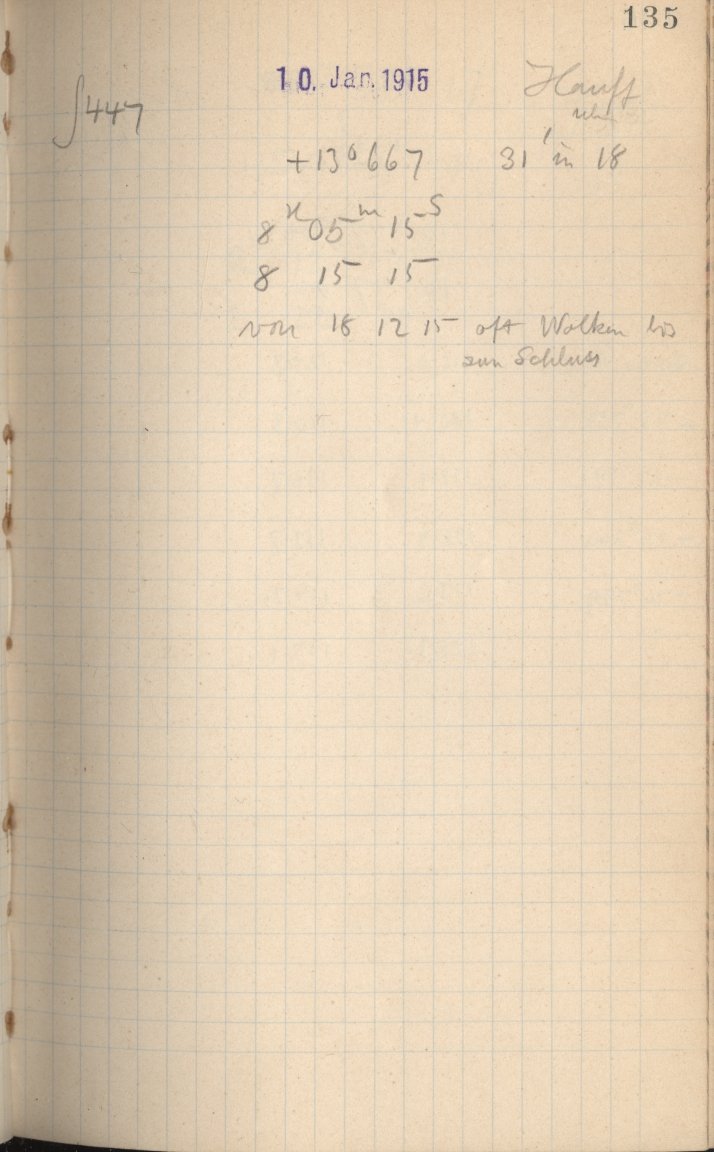 135
10. Jan. 1915
Hauff
∫447
+13°667 31' in 18
8 05ᵐ 15ˢ
8 15 15
von 18 12 15 oft Wolken bis
zum Schluss